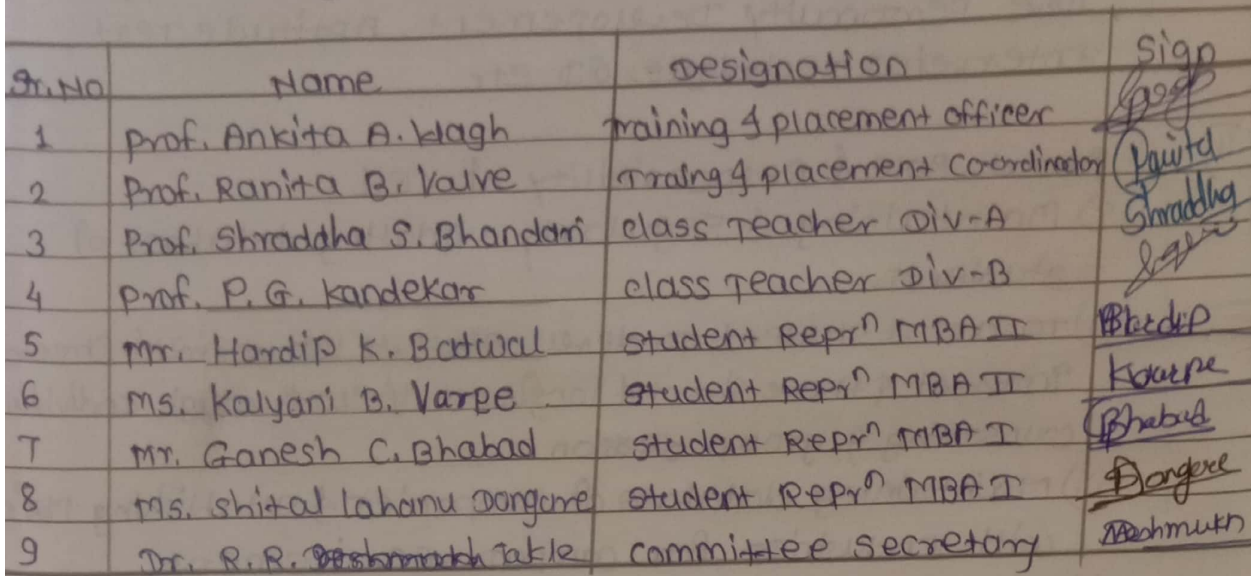 Sr. No Name Designation Sign
1 Prof. Ankita A. Wagh Training & placement officer
2 Prof. Ranita B. Valve Traing & placement Coordinador Panita
3 Prof. Shraddha S. Bhandari class Teacher Div-A Shraddha
4 Prof. P. G. Kandekar class Teacher Div-B
5 Mr. Hardip K. Batwal Student Reprⁿ MBA II
6 Ms. Kalyani B. Varpe Student Reprⁿ MBA II
7 Mr. Ganesh C. Bhabad Student Reprⁿ MBA I Bhabad
8 Ms. Shital lahanu Dongare Student Reprⁿ MBA I Dongare
9 Dr. R. R. Takle committee secretary